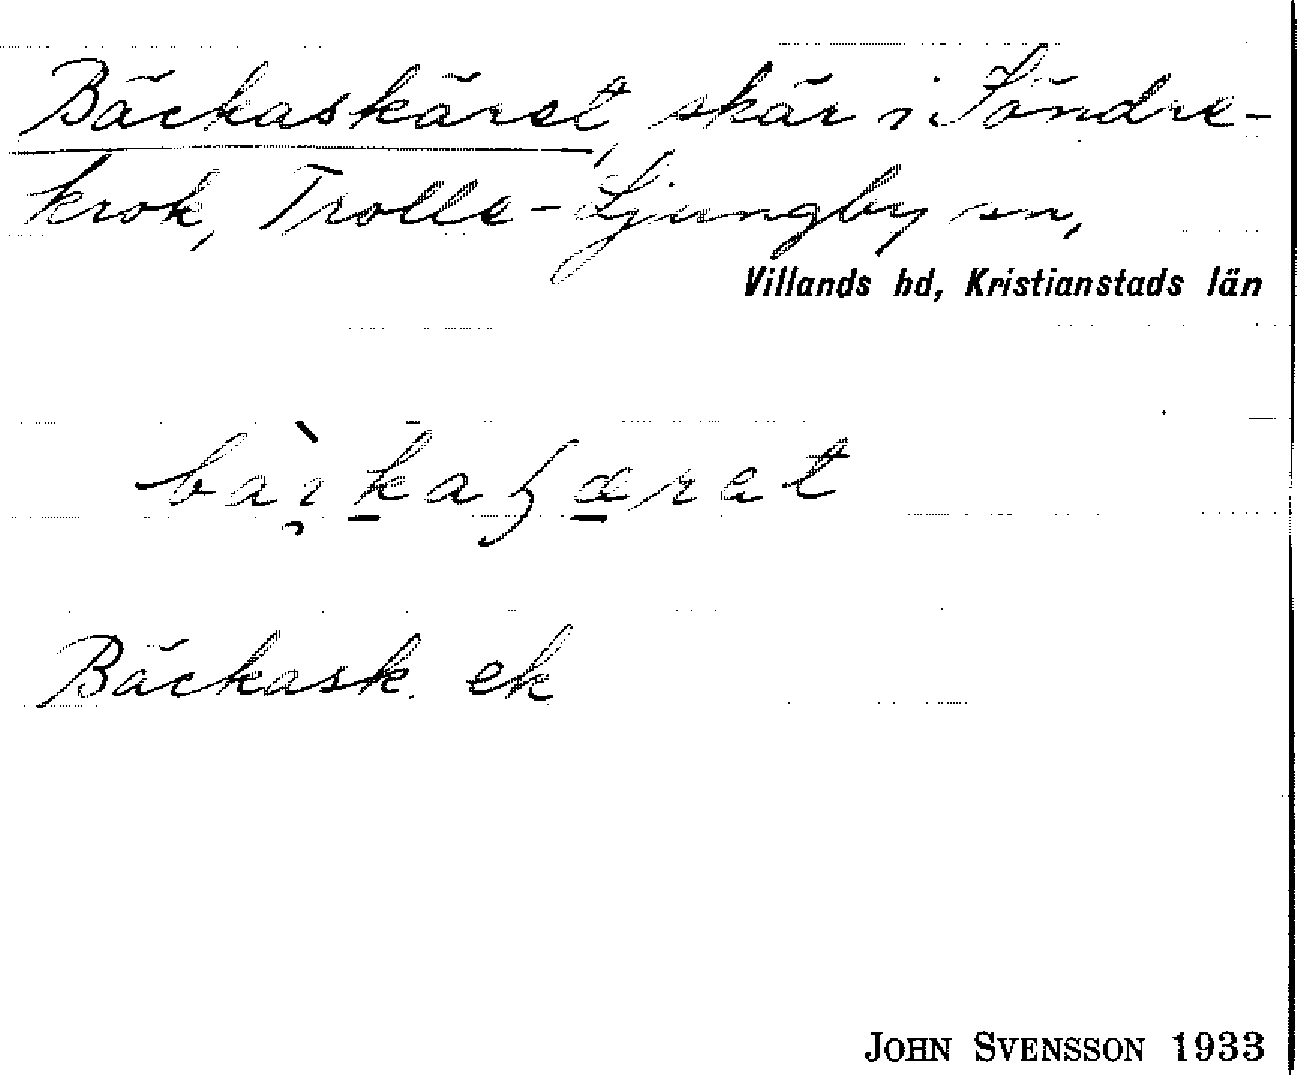 Bäckaskäret, skär i Söndre-
krok, Trolle-Ljungby sn,
Villands hd, Kristianstads län
Bäckask. ek
JOHN SVENSSON 1933